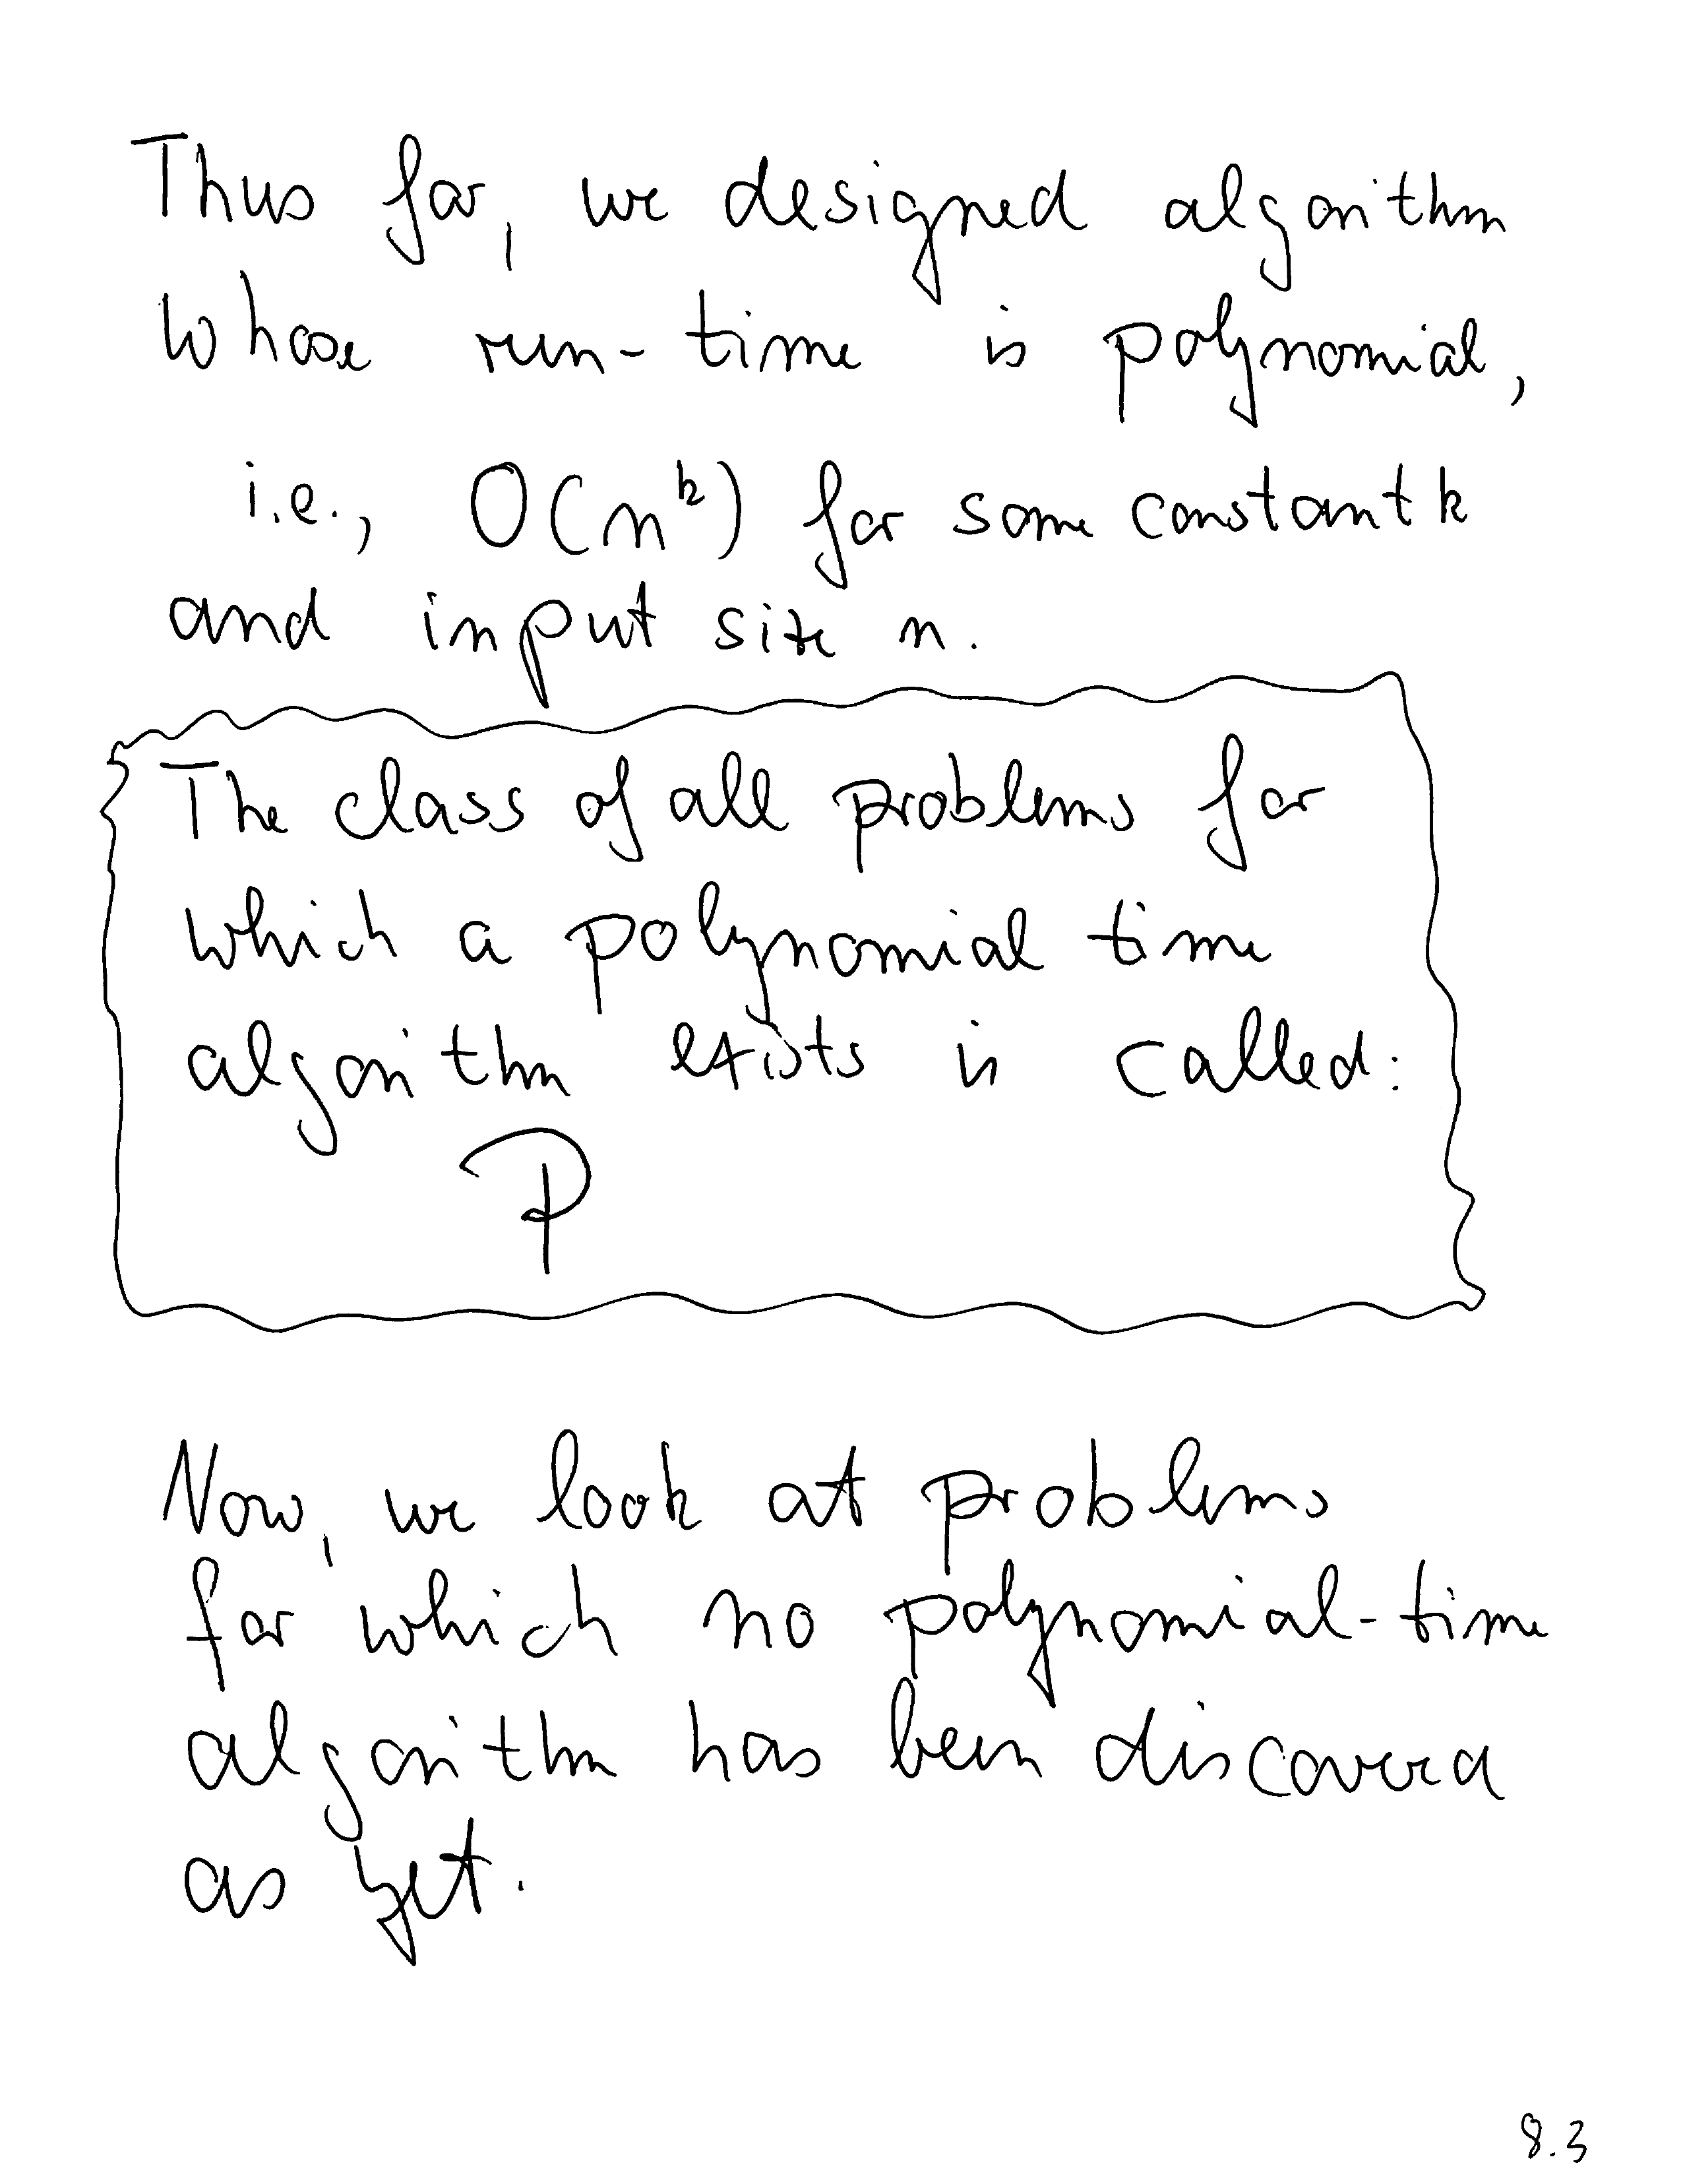 Thus far, we designed algorithm
whose run-time is polynomial,
i.e., O(n^k) for some constant k
and input size n.
The class of all problems for
which a polynomial time
algorithm exists is called:
P
Now, we look at problems
for which no polynomial-time
algorithm has been discovered
as yet.
8.3